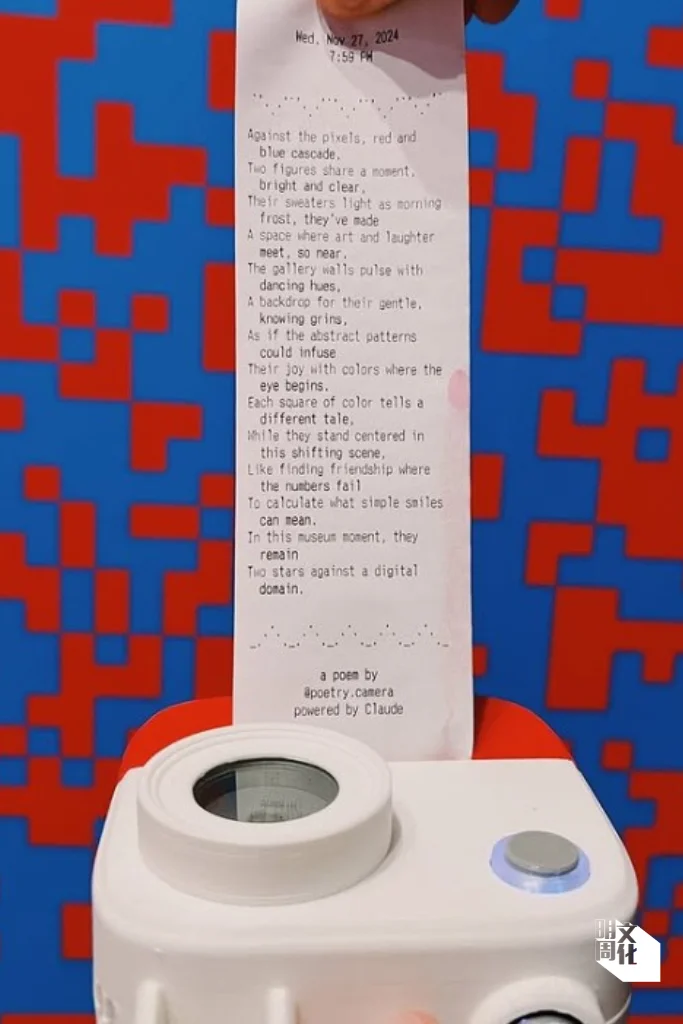 Wed, Nov 27, 2024
7:59 PM
Against the pixels, red and
blue cascade,
Two figures share a moment,
bright and clear,
Their sweaters light as morning
frost, they've made
A space where art and laughter
meet, so near.
The gallery walls pulse with
dancing hues,
A backdrop for their gentle,
knowing grins,
As if the abstract patterns
could infuse
Their joy with colors where the
eye begins.
Each square of color tells a
different tale,
While they stand centered in
this shifting scene,
Like finding friendship where
the numbers fail
To calculate what simple smiles
can mean.
In this museum moment, they
remain
Two stars against a digital
domain.
a poem by
@poetry.camera
powered by Claude
明周文化